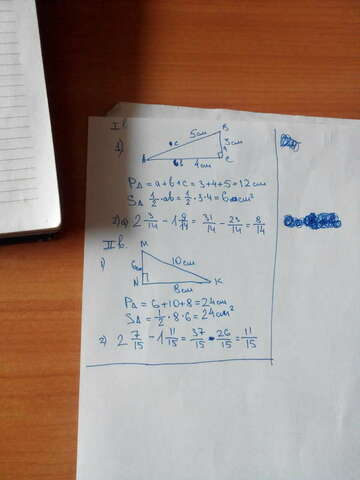 I в.
1)
5см B
c
a 3см
A b 4см C
P△ = a+b+c = 3+4+5 = 12см
S△ 1/2·ab = 1/2·3·4 = 6см²
2) а) 2 3/14 - 1 9/14 = 31/14 - 23/14 = 8/14
II в.
M
1)
6см 10см
N K
8см
P△ = 6+10+8 = 24см
S△ = 1/2·8·6 = 24см²
2) 2 7/15 - 1 11/15 = 37/15 - 26/15 = 11/15